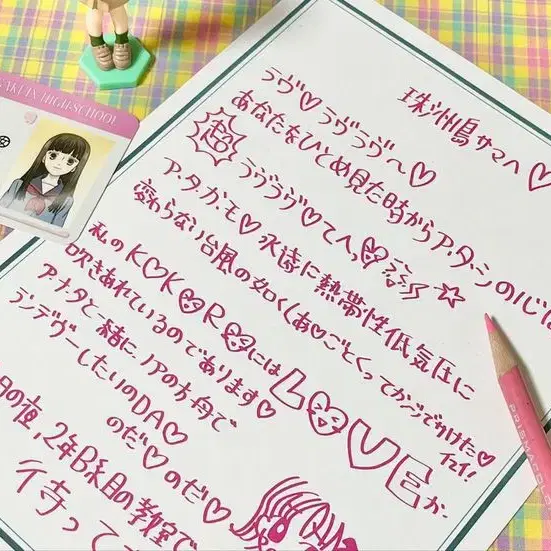 AKUEN HIGH-SCHOOL
珠洲島サマへ♡
ラヴ♡ラヴラヴ〜♡
あなたをひとめ見た時からア・タ・シの心は
超ラヴラヴ♡てへ
ア・タ・カ・モ♡永遠に熱帯性低気圧に
変わらない台風の如く(あ♡ごとくってかごでかけた♡イエイ!
私のK♡K♡R♡にはL♡VEが
吹きあれているのであります♡
アナタと一緒にノアの方舟で
ランデヴーしたいのDA♡
のだ♡のだ♡
の夜、2年B組の教室で
待って